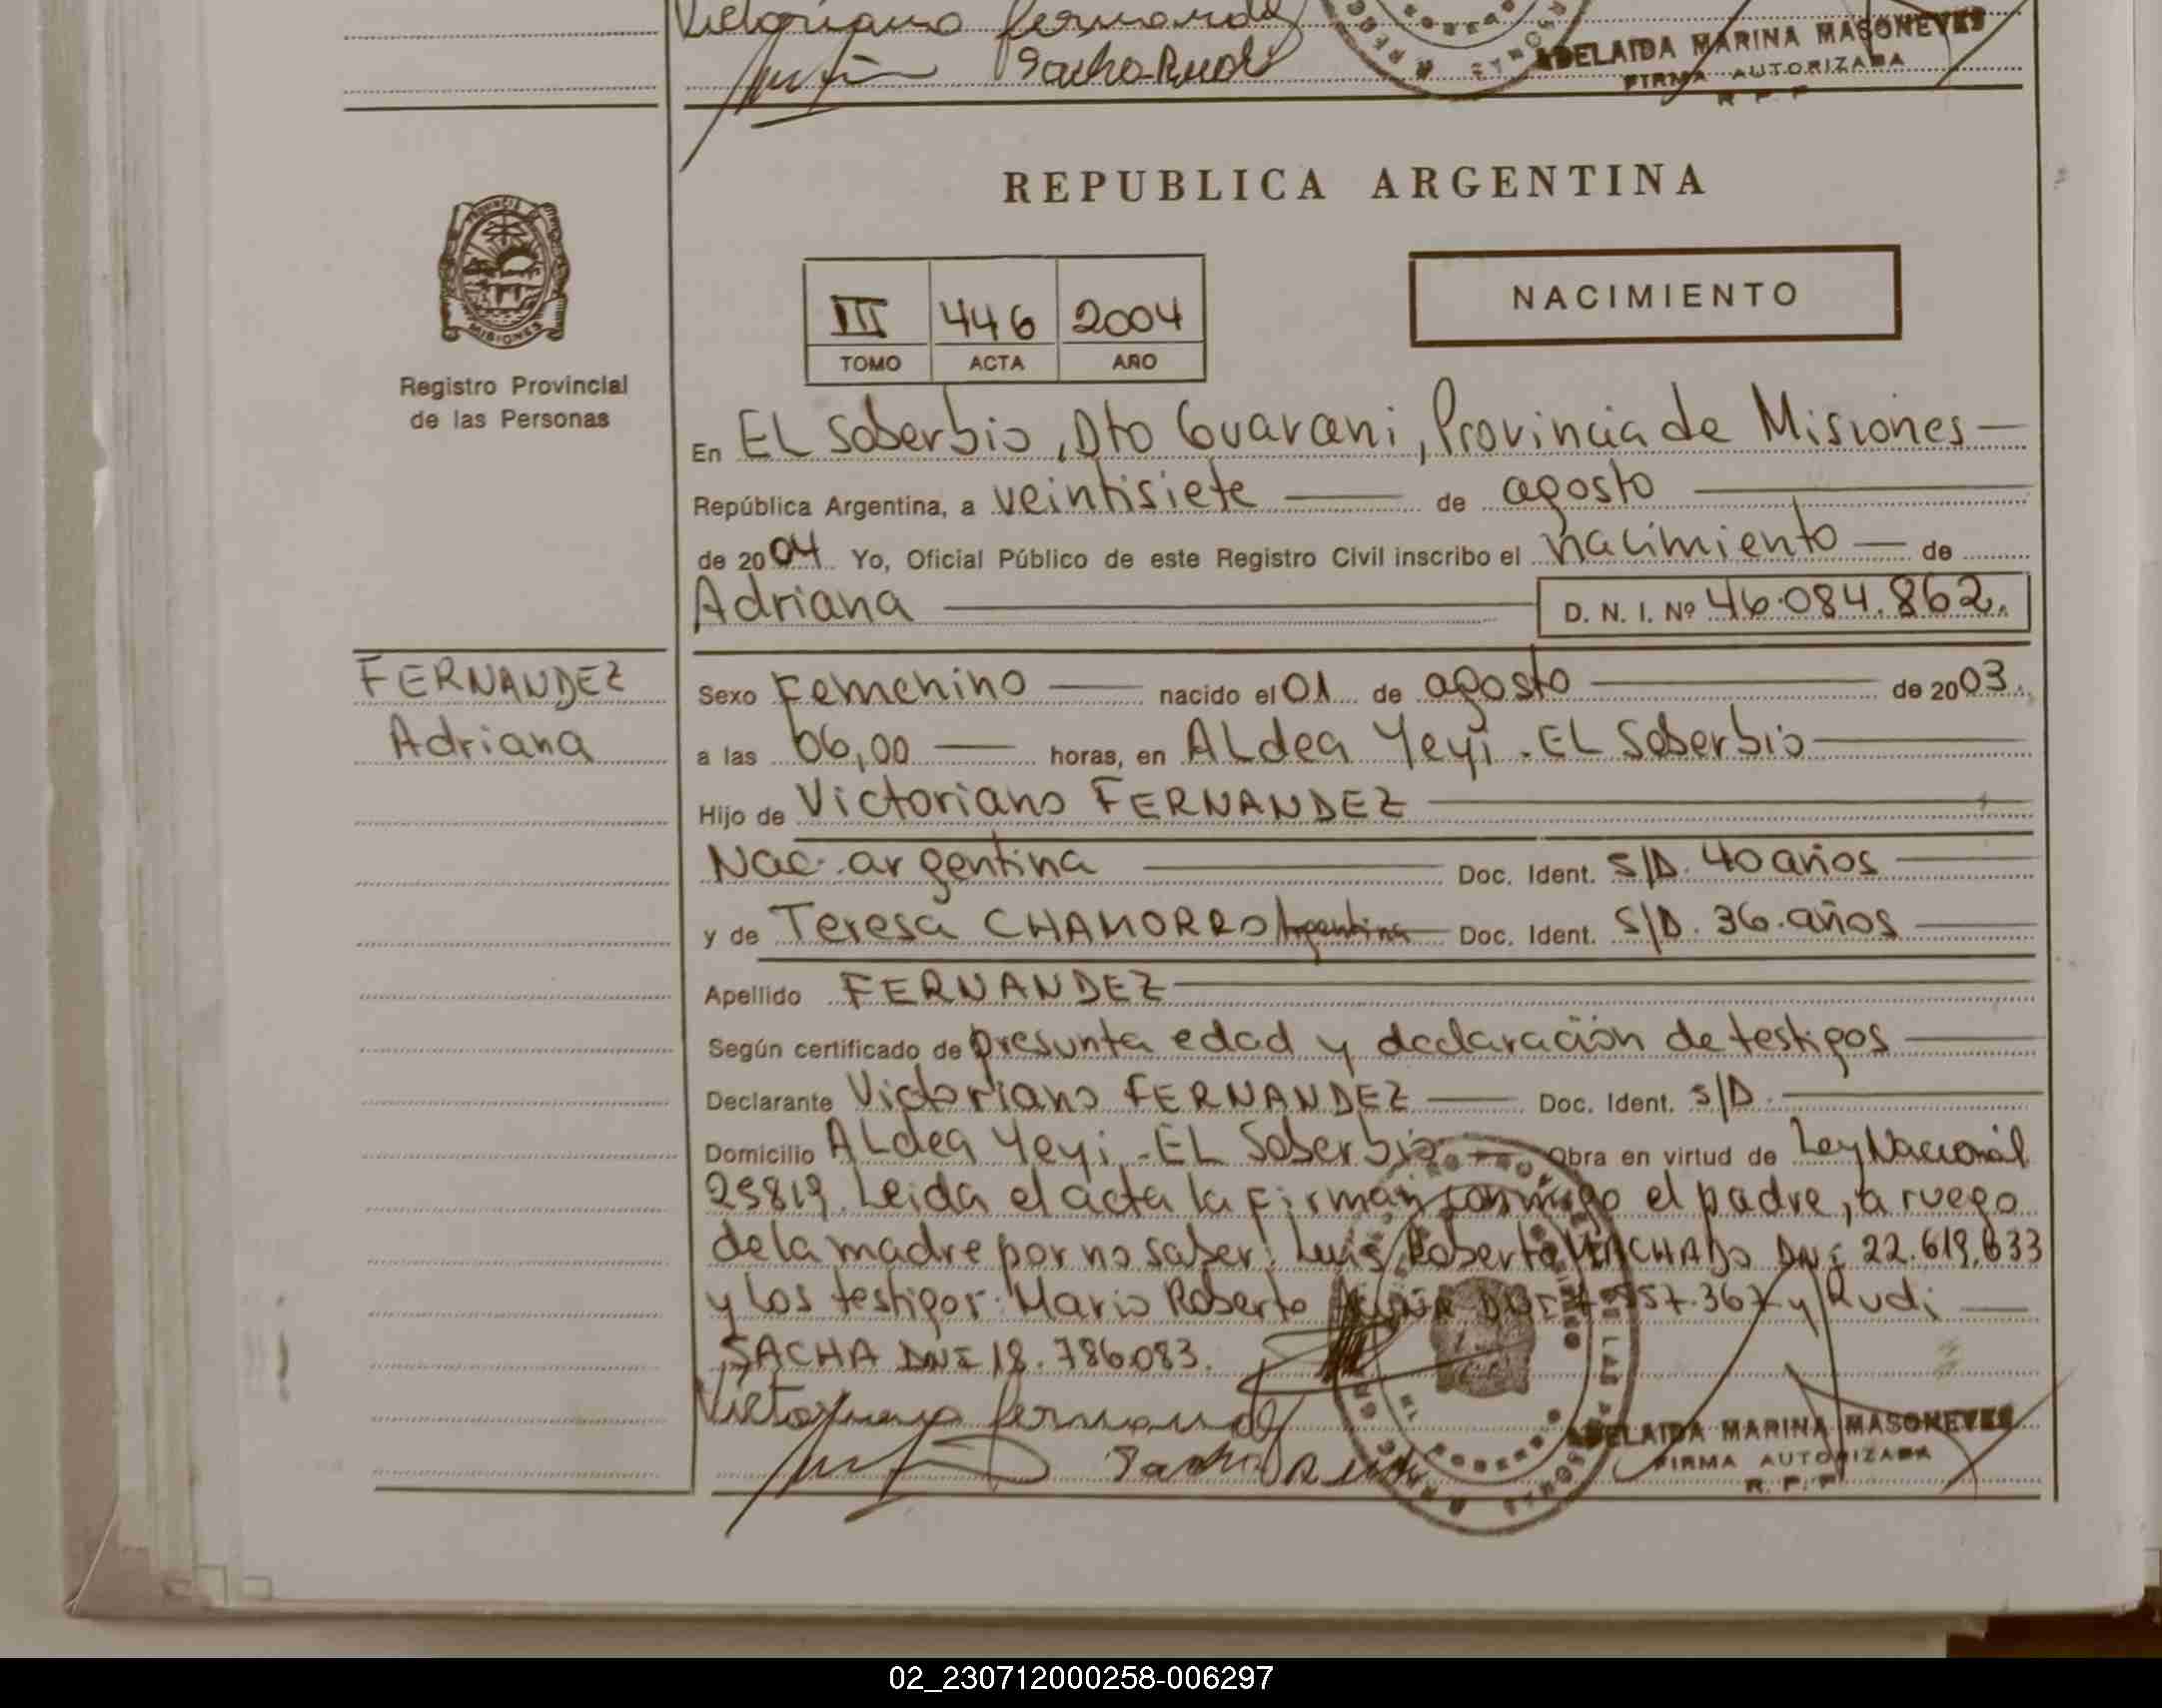 Victoriano Fernandez
Sacha Rudi
ADELAIDA MARINA MASONEVES
FIRMA AUTORIZADA
R. P. P
REPUBLICA ARGENTINA
PROVINCIA DE
MISIONES
Registro Provincial
de las Personas
III 446 2004
TOMO ACTA AÑO
NACIMIENTO
En EL Soberbio, Dto Guarani, Provincia de Misiones
República Argentina, a veintisiete de agosto
de 2004 Yo, Oficial Público de este Registro Civil inscribo el nacimiento de
Adriana D. N. I. Nº 46.084.862.
FERNANDEZ
Adriana
Sexo Femenino nacido el 01 de agosto de 2003.
a las 06,00 horas, en ALdea Yeyi - EL Soberbio
Hijo de Victoriano FERNANDEZ
Nac. argentina Doc. Ident. S/D. 40 años
y de Teresa CHAMORRO Argentina Doc. Ident. S/D. 36. años
Apellido FERNANDEZ
Según certificado de presunta edad y declaración de testigos
Declarante Victoriano FERNANDEZ Doc. Ident. S/D.
Domicilio ALdea Yeyi - EL Soberbio Obra en virtud de Ley Nacional
25819. Leida el acta la firman conmigo el padre, a ruego
de la madre por no saber: Luis Roberto MACHADO DNI 22.619.633
y los testigos: Mario Roberto DNI 557.367 y Rudi
SACHA DNI 18.786.083.
Victoriano Fernandez
Sacha Rudi
ADELAIDA MARINA MASONEVES
FIRMA AUTORIZADA
R. P. P
02_230712000258-006297